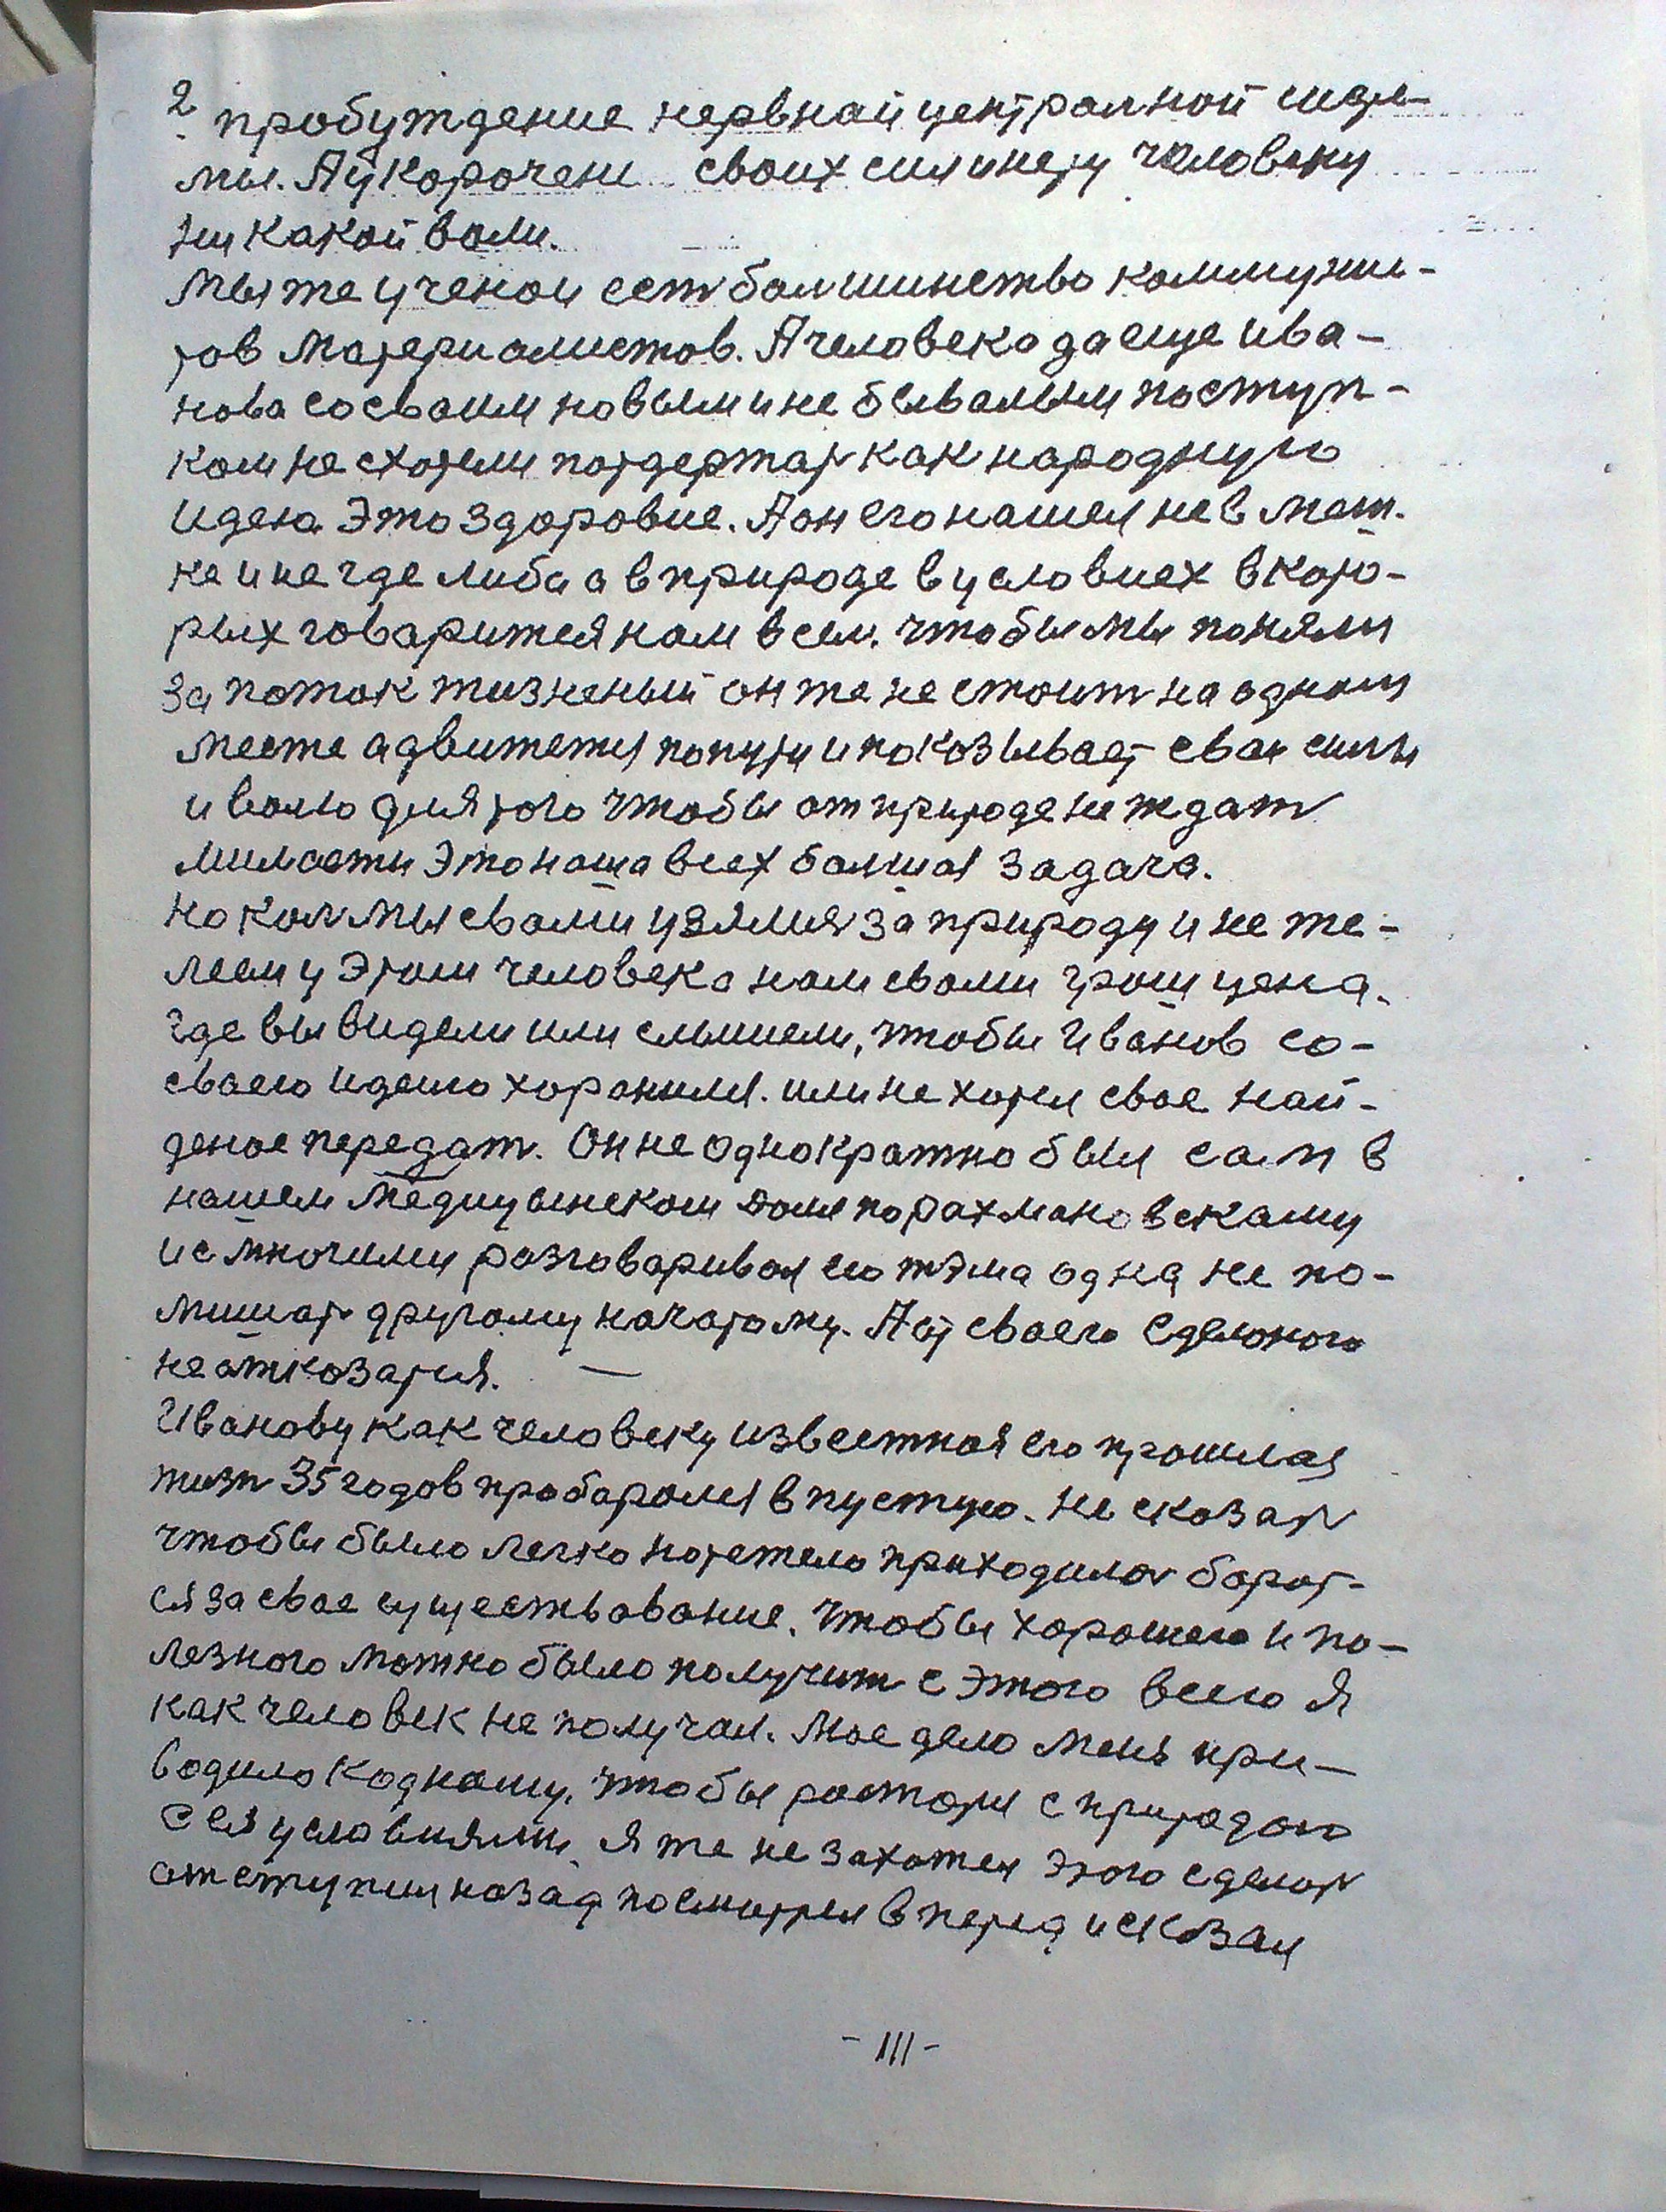 2. пробуждение нервнай централной систе-
мы. А укорочени своих сил и нету человеку
ни какой воли.
Мы же ученои ест болшинство коммуни-
тов Материалистов. А человека да еще ива-
нова со сваим новым и не бывалым поступ-
ком не схотели потдержат как народную
идею. Это здоровие. А он его нашел не в
не и не где либа а в природе в условиех в като-
рых говарится нам всем. чтобы мы поняли
за поток жизненый он же не стоит на адном
месте а движется попути и показывает сваи силы
и волю для того чтобы от природе не ждат
миласти Это наша всех балшая Задача.
Но кол мы свами узялис за природу и не же-
леем у Этом человека нам свами грош цена.
Где вы видели или слышели, чтобы Иванов со-
сваею идеию хоранился. или не хотел свое най-
деное передат. Он не однократно был сам в
нашем Медицынском доме по рахмановскаму
и с многими разговаривал его тэма одна не по-
мишат другому начатому. А от своего Сделоного
не отказатся. —
Иванову как человеку известная его прошлая
жизн 35 годов пробаролся в пустую. Не сказат
чтобы было легко на тежело приходилос борот-
ся за свае существование. Чтобы харошего и по-
лезного можно было получит с Этого всего я
как человек не получал. Мое дело мень при-
водило к одному, чтобы растатся с природою
с ея условиями. Я же не захотел Этого сделат
отступил назад посмотрел в перед и сказал
- 111 -